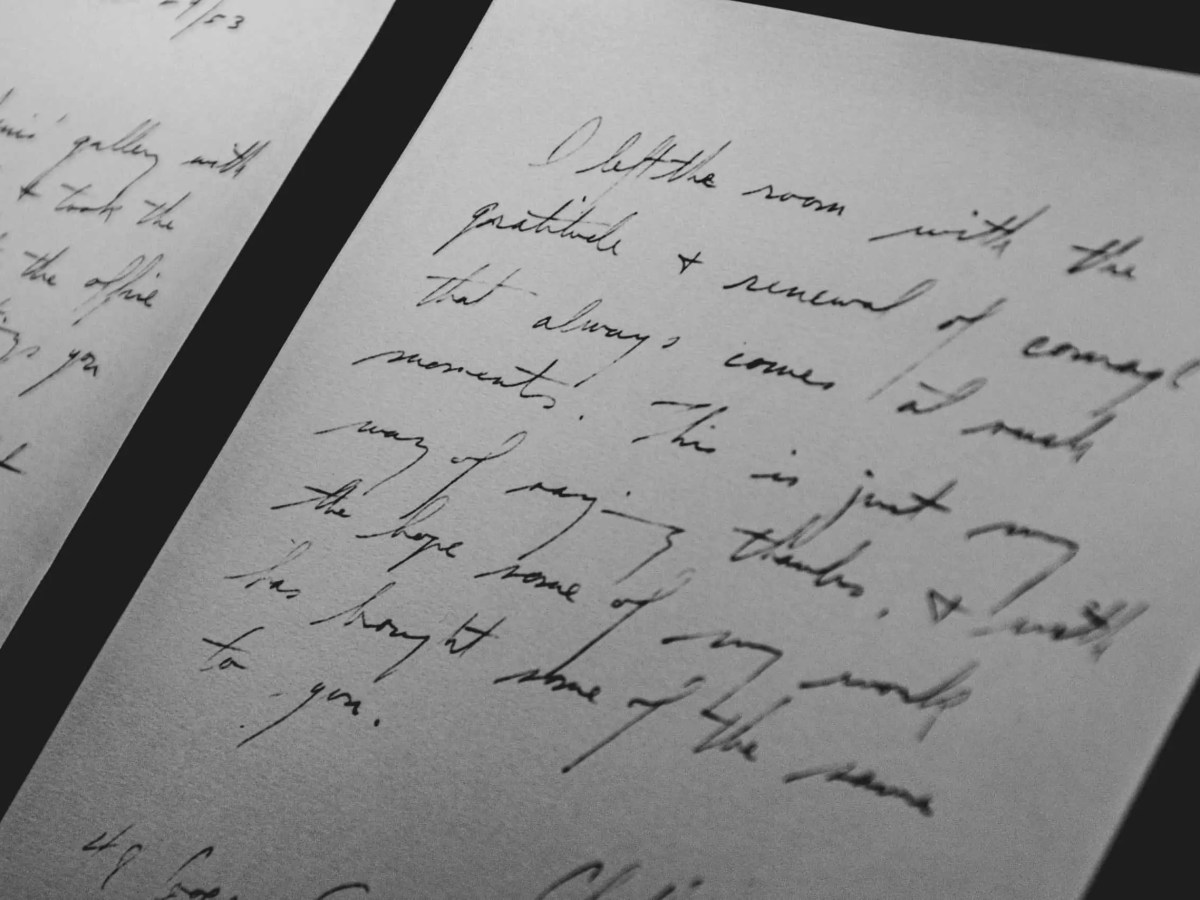 /53
gallery with
+ took the
the office
you
I left the room with the
gratitude + renewal of courage
that always comes at such
moments. This is just my
way of saying thanks, + with
the hope some of my work
has brought some of the same
to you.